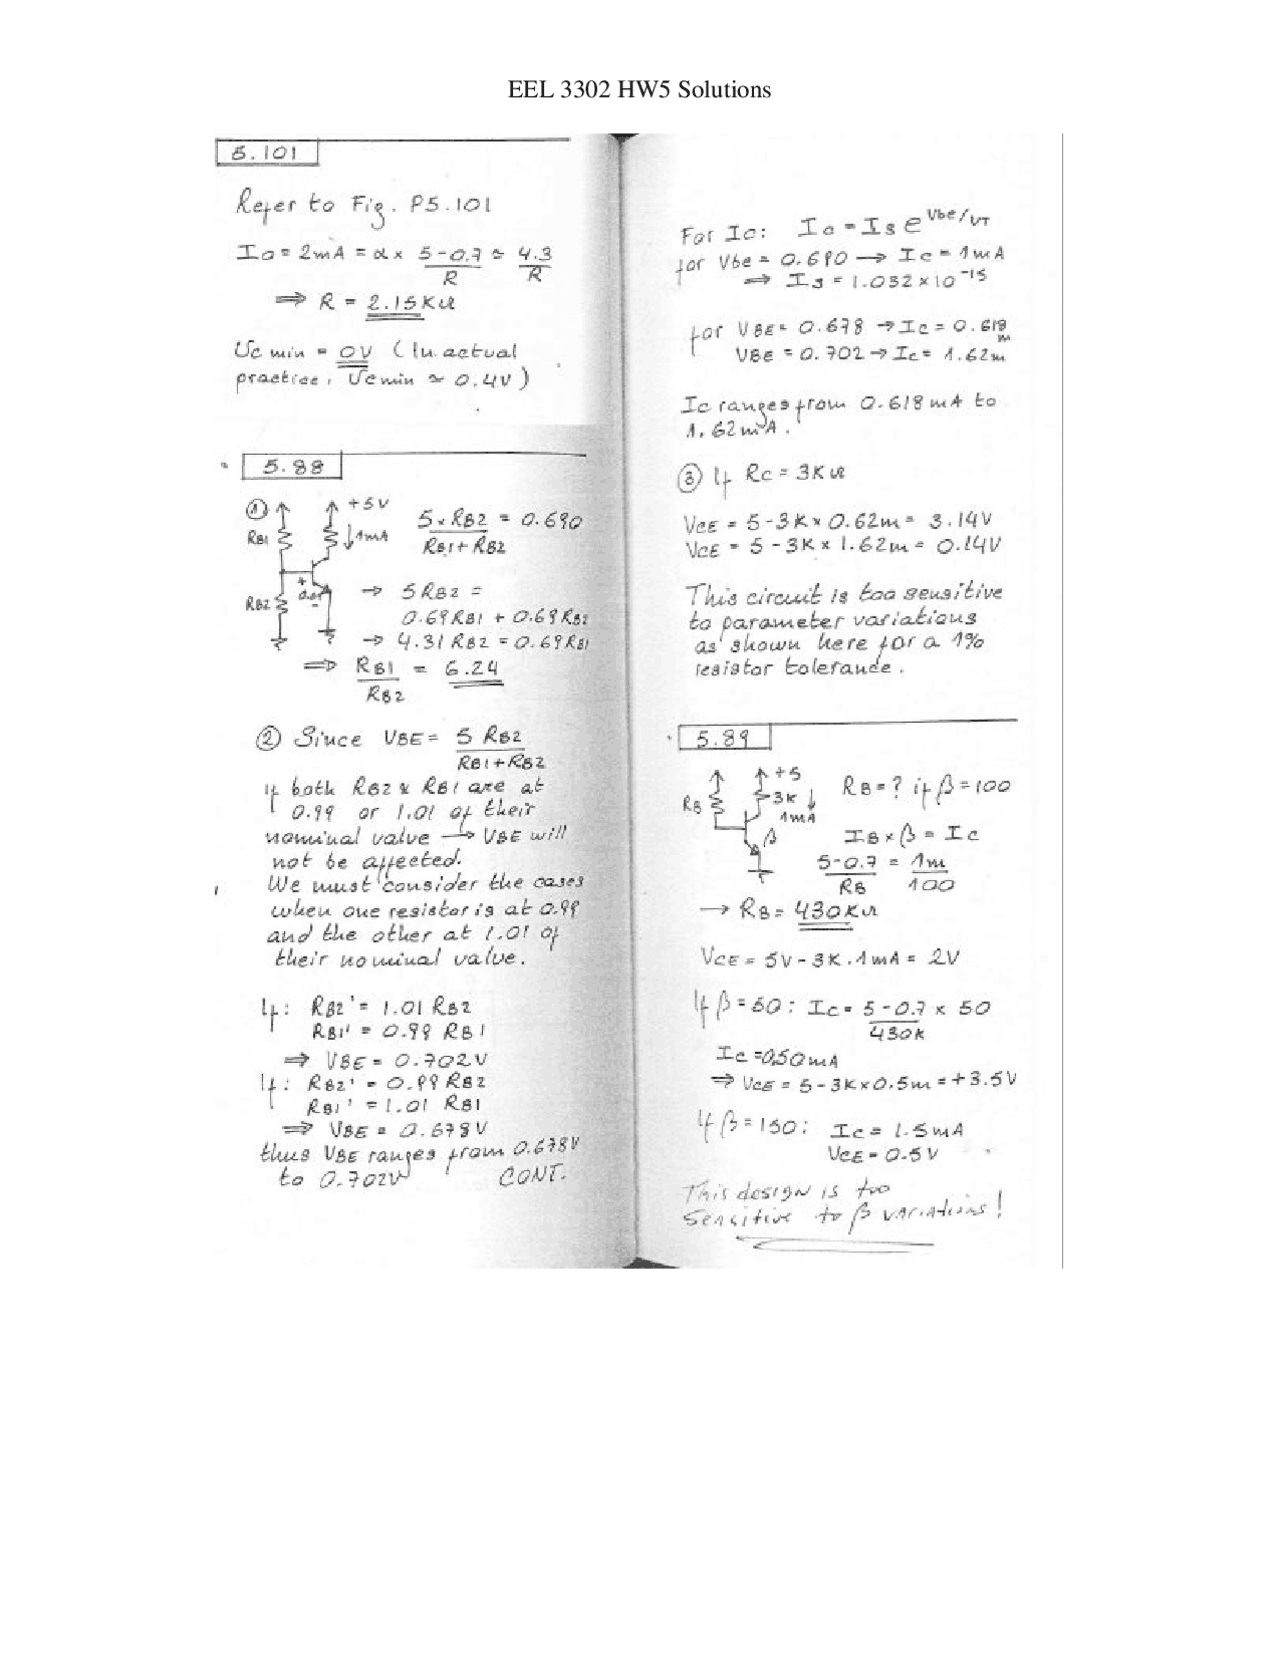 EEL 3302 HW5 Solutions
5.101
Refer to Fig. P5.101
Io = 2mA = α x 5-0.7 ≃ 4.3
R R
⟹ R = 2.15KΩ
Uc min = 0V (In actual
practice, Ucmin ≃ 0.4V)
5.88
① +5V
RB1 ↓1mA
RB2
5 x RB2 = 0.690
RB1+RB2
→ 5RB2 =
0.69RB1 + 0.69RB2
→ 4.31 RB2 = 0.69RB1
⟹ RB1 = 6.24
RB2
② Since VBE = 5 RB2
RB1+RB2
if both RB2 & RB1 are at
0.99 or 1.01 of their
nominal value → VBE will
not be affected.
We must consider the cases
when one resistor is at 0.99
and the other at 1.01 of
their nominal value.
If: RB2' = 1.01 RB2
RB1' = 0.99 RB1
⟹ VBE = 0.702V
If: RB2' = 0.99 RB2
RB1' = 1.01 RB1
⟹ VBE = 0.678V
thus VBE ranges from 0.678V
to 0.702V CONT.
For Ic: Ic = Is e Vbe/VT
for Vbe = 0.690 → Ic = 1mA
⟹ Is = 1.032 x 10-15
for VBE = 0.678 → Ic = 0.618m
VBE = 0.702 → Ic = 1.62m
Ic ranges from 0.618mA to
1.62mA.
③ If Rc = 3KΩ
VCE = 5-3K x 0.62m = 3.14V
VCE = 5-3K x 1.62m = 0.14V
This circuit is too sensitive
to parameter variations
as shown here for a 1%
resistor tolerance.
5.89
RB +5
3K ↓
1mA
β
RB = ? if β = 100
IB x β = Ic
5-0.7 = 1m
RB 100
→ RB = 430KΩ
VCE = 5V - 3K . 1mA = 2V
If β = 50: Ic = 5-0.7 x 50
430K
Ic = 0.50mA
⟹ VCE = 5-3K x 0.5m = +3.5V
If β = 150: Ic = 1.5mA
VCE = 0.5V
This design is too
sensitive to β variations!